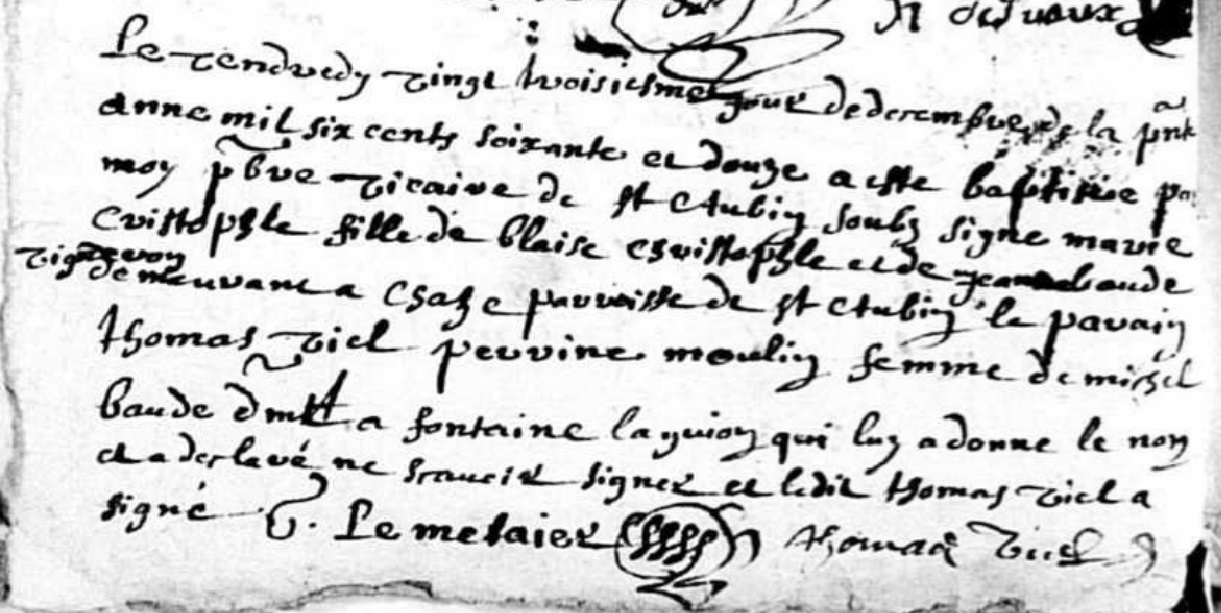 n deduaux
Le vendredy vingt troisiesme jour de decembre de la pnte
anne mil six cents soixante et douze a este baptisee par
moy pbre vicaire de st Aubin soubz signe marie
Cristophle fille de blaise Christophle et de jeanne baude
vigneron
demeurant a Chaze parroisse de st Aubin le parain
thomas viel perrine moulin femme de michel
baude dmt a fontaine la guion qui luy a donne le nom
et a desclaré ne scauoir signer et ledit thomas viel a
signé G. Le metaier thomas viel